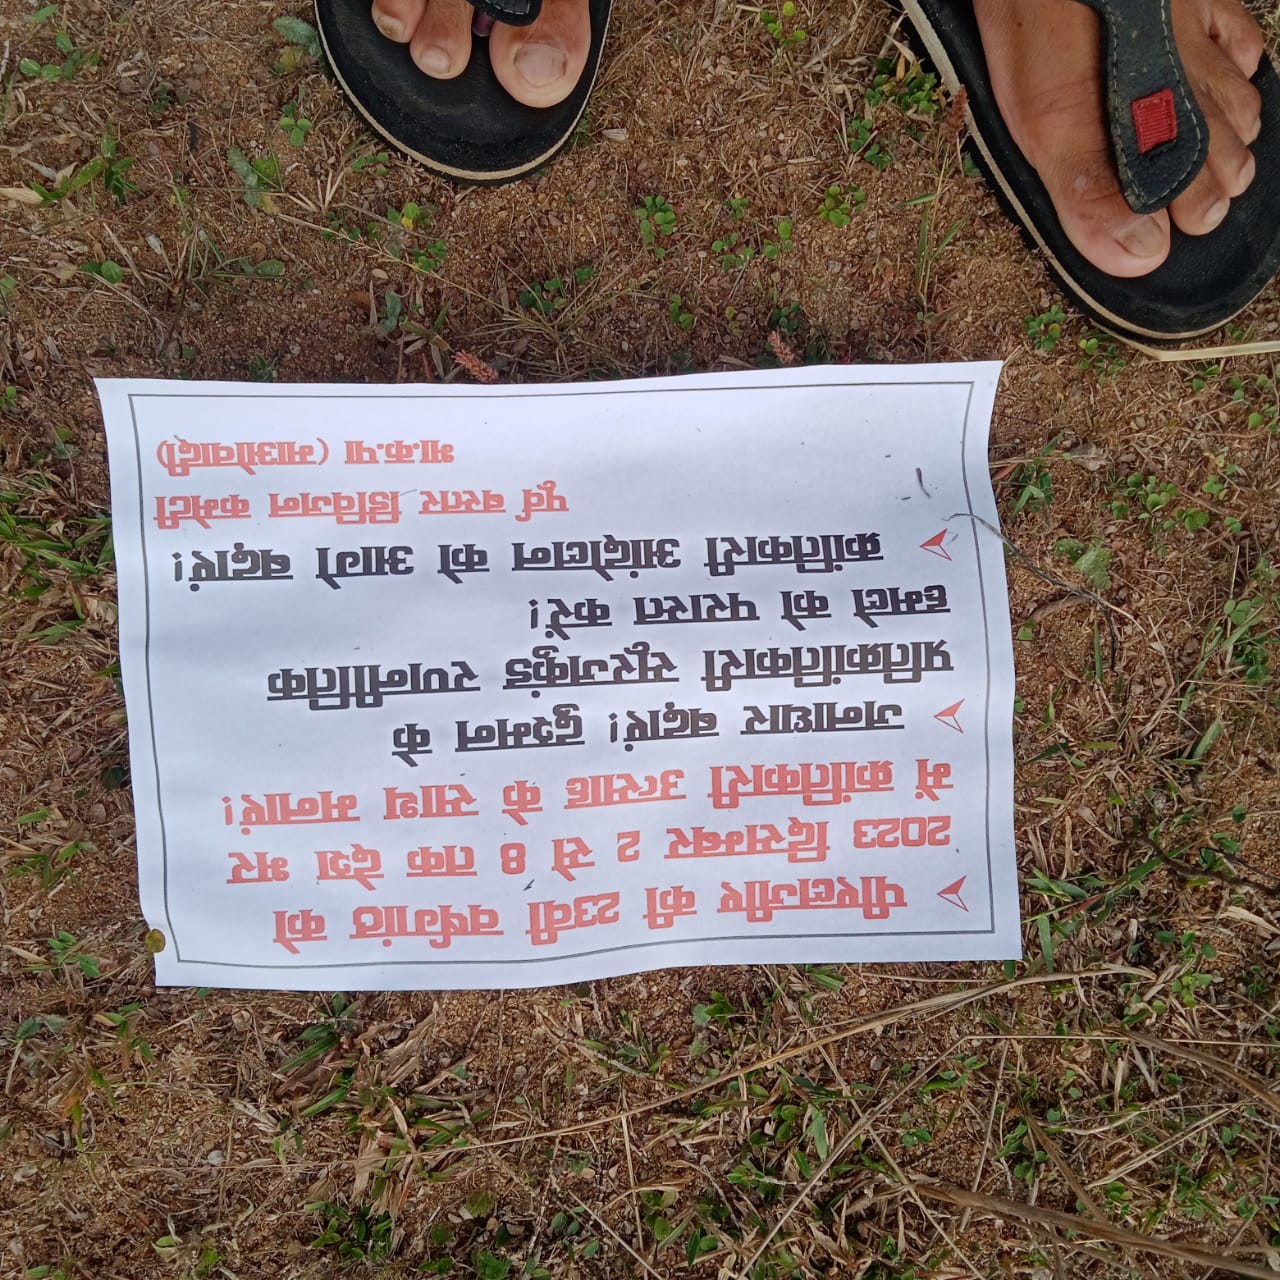 पीएलजीए की 23वी वर्षगांठ को
2023 दिसम्बर 2 से 8 तक देश भर
में क्रांतिकारी उत्साह के साथ मनाएं!
जनाधार बढ़ाएं! दुश्मन के
प्रतिक्रांतिकारी सूरजकुंड रणनीतिक
हमले को परास्त करें!
क्रांतिकारी आंदोलन को आगे बढ़ाएं!
पूर्व बस्तर डिविजन कमेटी
भा.क.पा (माओवादी)